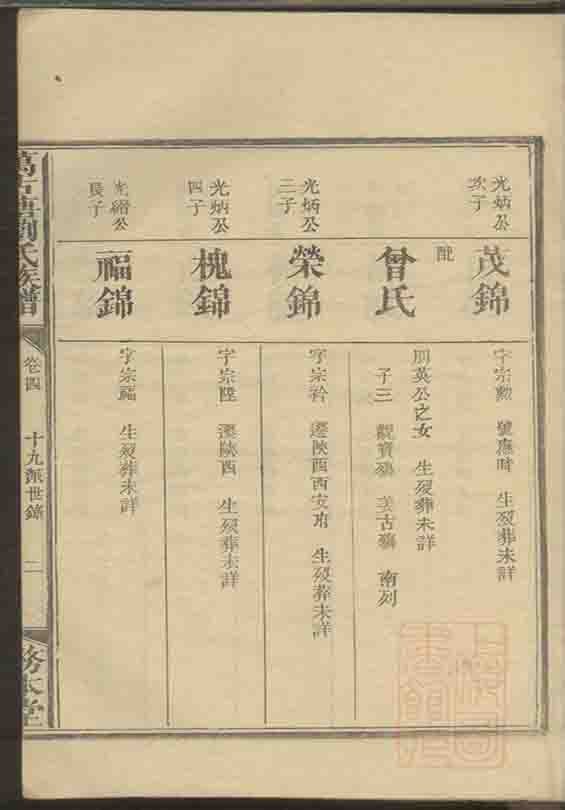 光炳公
次子
茂錦
字宗勲 號應時 生殁葬未詳
配
曾氏
朋英公之女 生殁葬未詳
子三 觀寶殤 美古殤 南列
光炳公
三子
榮錦
字宗衿 遷陝西西安府 生殁葬未詳
光炳公
四子
槐錦
字宗陞 遷陝西 生殁葬未詳
光縉公
長子
福錦
字宗福 生殁葬未詳
萬石塘劉氏族譜
卷四
十九派世錄
二
務本堂